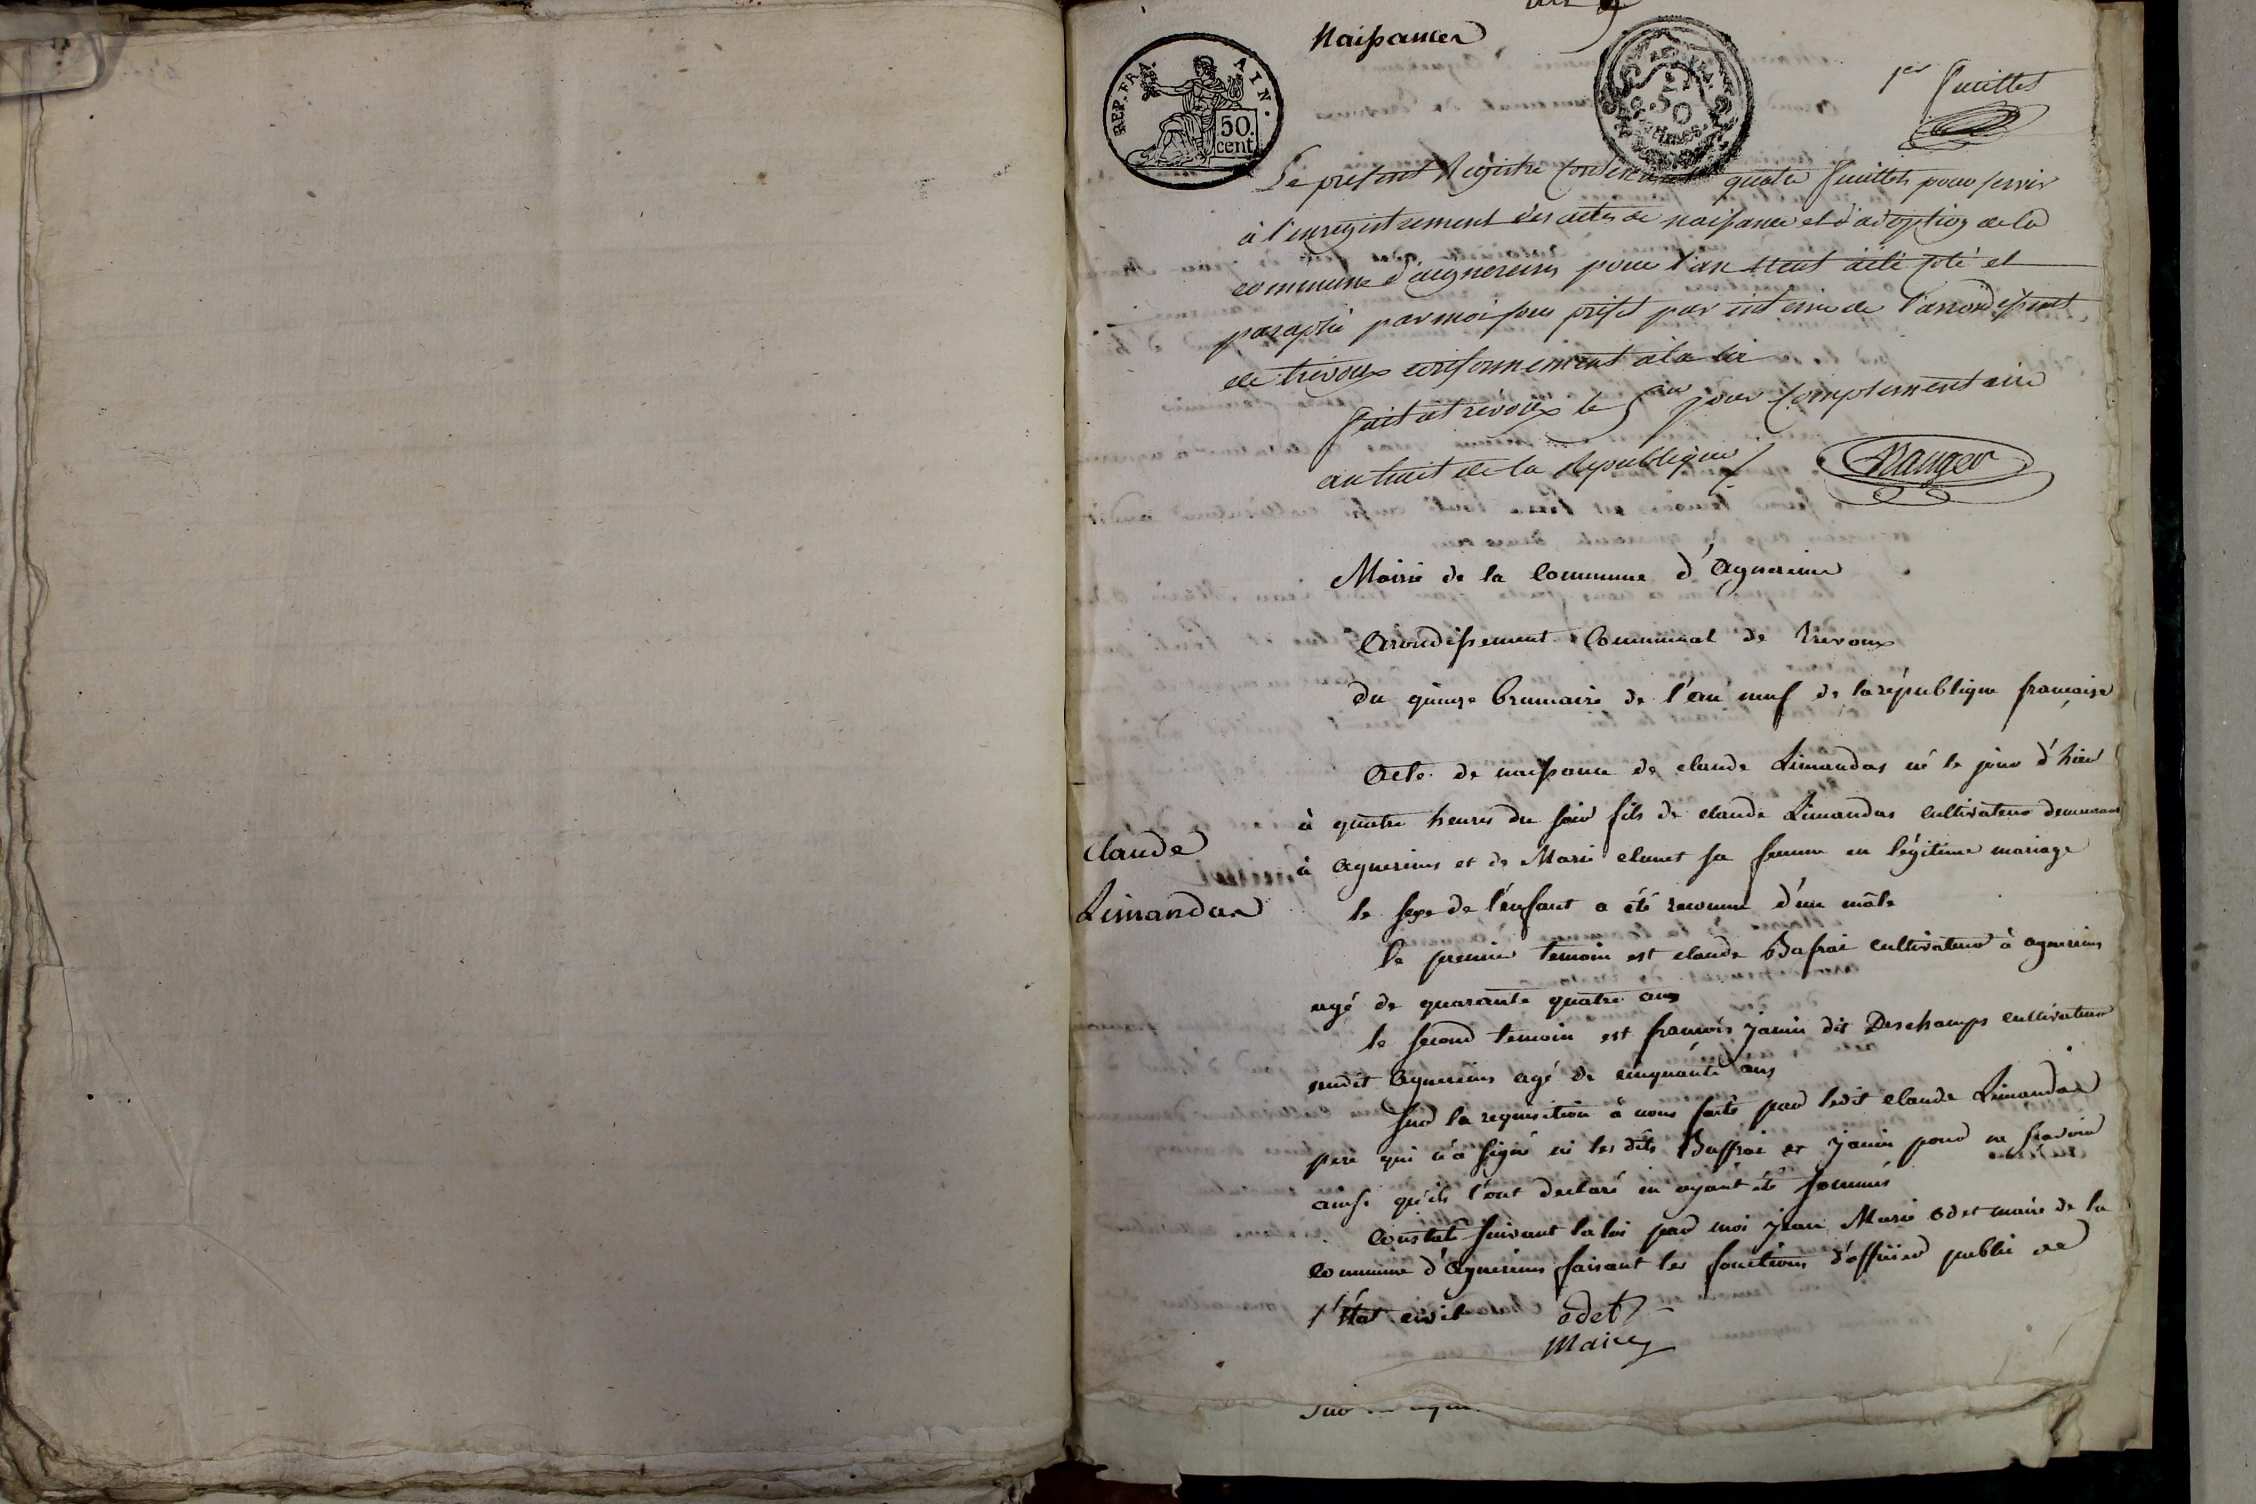 an 9
Naissances
REP. FRA. AIN.
50 cent
50
1er feuillet
Le présent Registre contenant quatre feuillets pour servir
à l'enregistrement des actes de naissance et d'adoption de la
commune d'aignereins pour l'an neuf a été coté et
paraphé par moi sous préfet par interim de l'arrondissement
de trevoux conformement à la loi
fait at revoux le 5me jour complementaire
an huit de la Republique
Mairie de la Commune d'Agnereins
Arondissement Communal de Trevoux
du quinze brumaire de l'an neuf de la république française
Acte de naissance de claude Limandas né le jour d'hier
à quatre heures du soir fils de claude Limandas cultivateur demeurant
Claude
Limandas
à agnereins et de Marie clunet sa femme en légitime mariage
le sexe de l'enfant a été reconnu d'un mâle
le premier temoin est claude Bafrai cultivateur à agnereins
agé de quarante quatre ans
le second temoin est francois janin dit Deschamps cultivateur
audit agnereins agé de cinquante ans
sur la requisition à nous faite par ledit claude Limandas
pere qui n'a signé ni les dits Baffrai et janin pour ne scavoir
ainsi qu'ils l'ont declaré en ayant été sommés
Constaté suivant la loi par moi jean Marie odet maire de la
commune d'agnereins faisant les fonctions d'officier public de
l'état civil odet
Maire